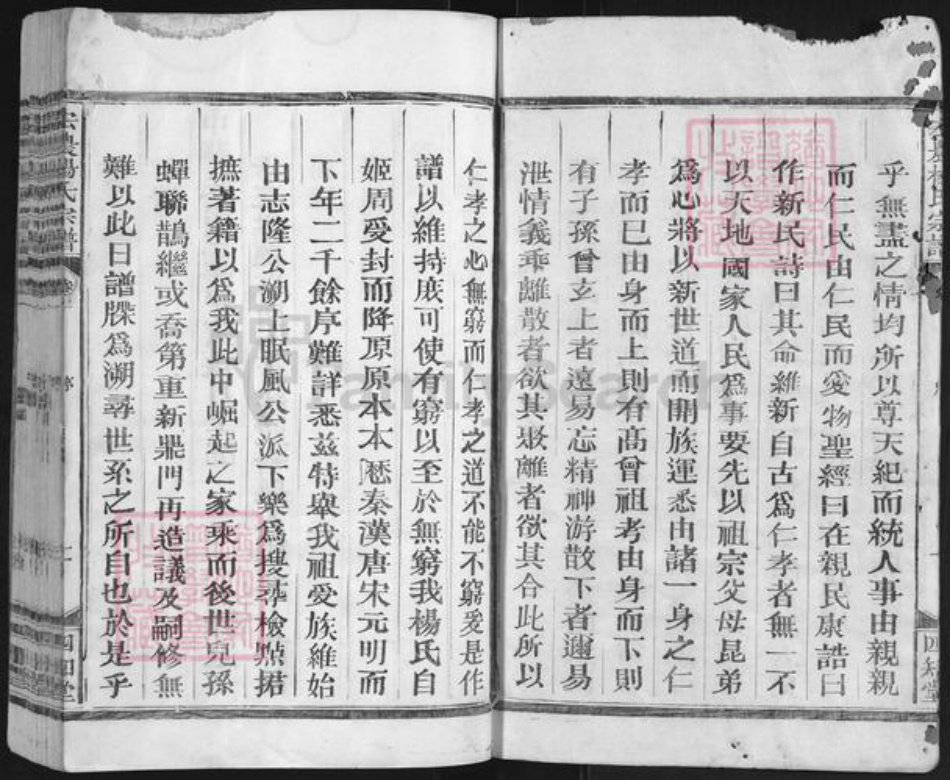 乎無盡之情均所以尊天紀而統人事由親親
而仁民由仁民而愛物聖經曰在親民康誥曰
作新民詩曰其命維新自古爲仁孝者無一不
以天地國家人民爲事要先以祖宗父母昆弟
爲心將以新世道而開族運悉由諸一身之仁
孝而已由身而上則有高曾祖考由身而下則
有子孫曾玄上者遠易忘精神游散下者邇易
泄情義乖離散者欲其聚離者欲其合此所以
仁孝之心無窮而仁孝之道不能不窮爰是作
譜以維持庶可使有窮以至於無窮我楊氏自
姬周受封而降原原本本歷秦漢唐宋元明而
下年二千餘序難詳悉茲特舉我祖愛族維始
由志隆公溯上眠風公派下樂爲搜尋檢㸃捃
摭著籍以爲我此中崛起之家乘而後世兒孫
蟬聯鵲繼或喬第重新鼎門再造議及嗣修無
難以此曰譜牒爲溯尋世系之所自也於是乎
楊氏宗譜
四知堂
FamilySearch